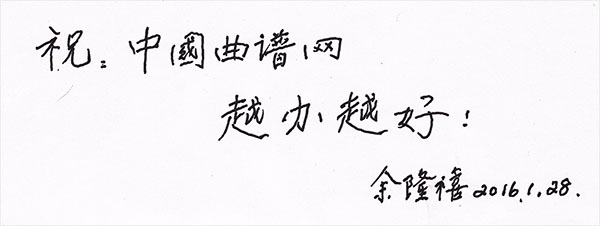 祝:中國曲谱网
越办越好!
余隆禧2016.1.28.